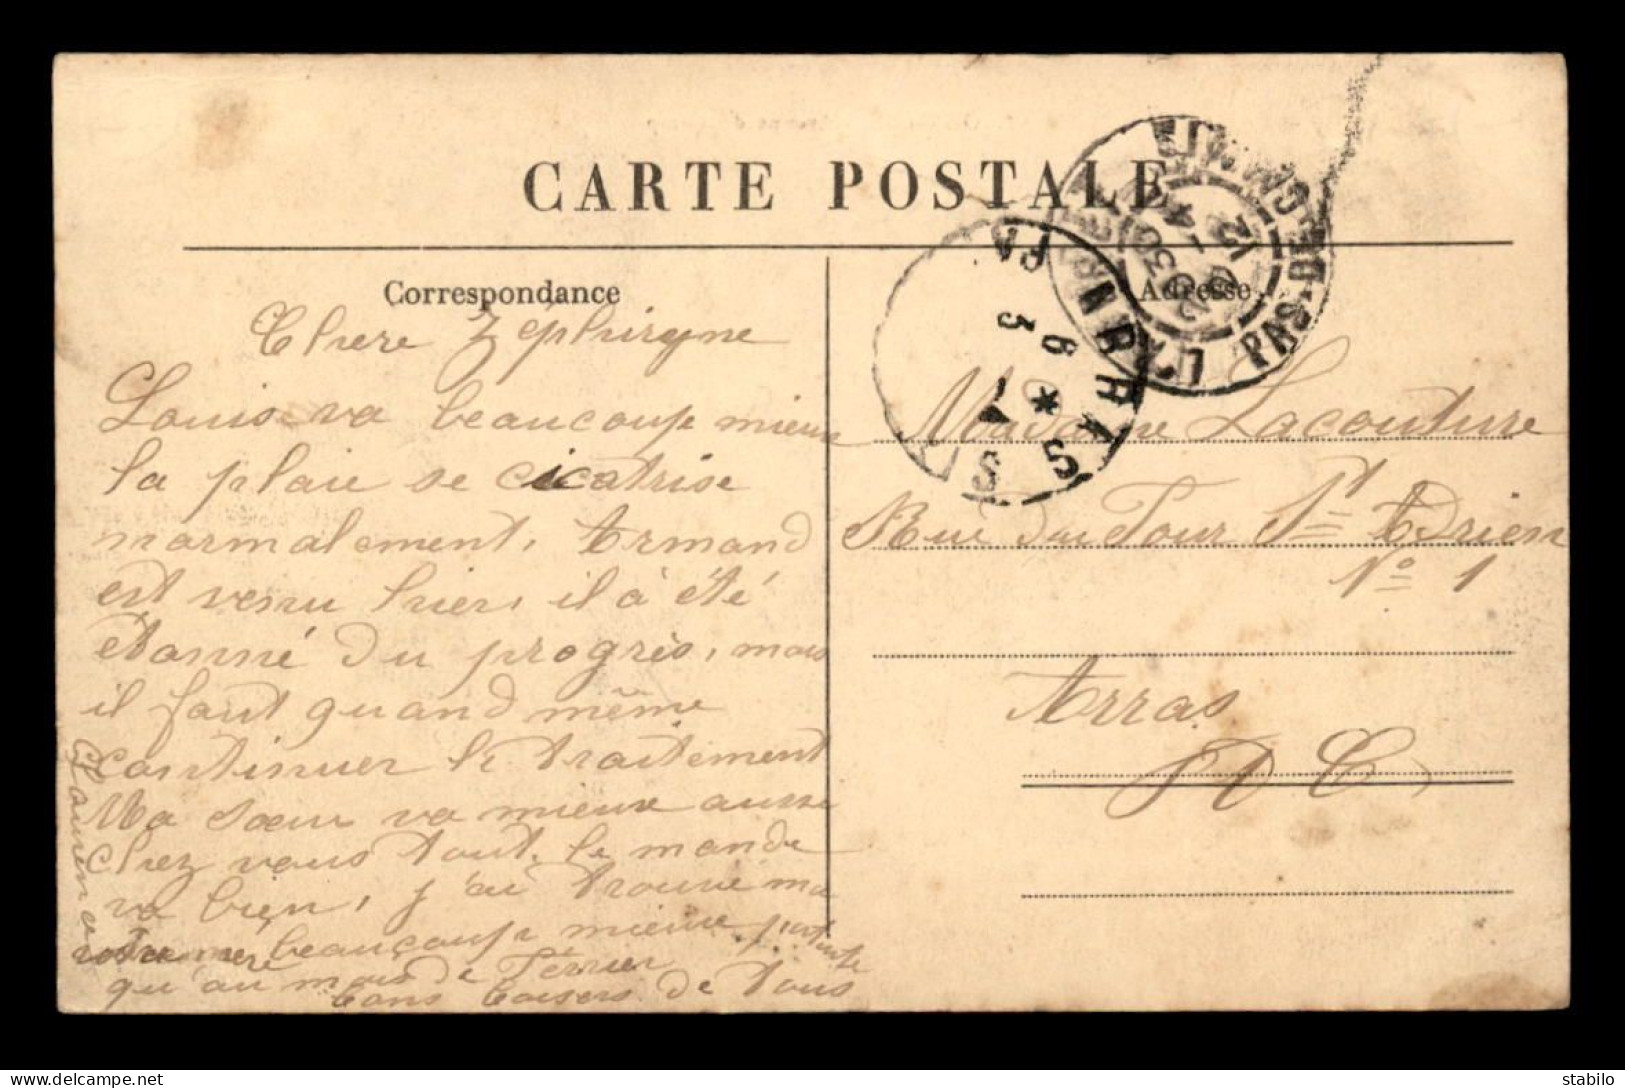 CARTE POSTALE
Correspondance
Adresse
Chere Zéphiryne
Louis va beaucoup mieux
la plaie se cicatrise
normalement, Armand
est venu hier, il à été
étonné du progrès, mais
il faut quand même
continuer le traitement
Ma sœur va mieux aussi
chez vous tout le monde
va bien, j'ai trouvé ma
beaucoup mieux
qu'au mois de Février
bons baisers de tous
votre mère
Madame Lacouture
Rue du Four St Adrien
No 1
Arras
P D C
PAS-DE-CALAIS
ARRAS
delcampe.net
stabilo